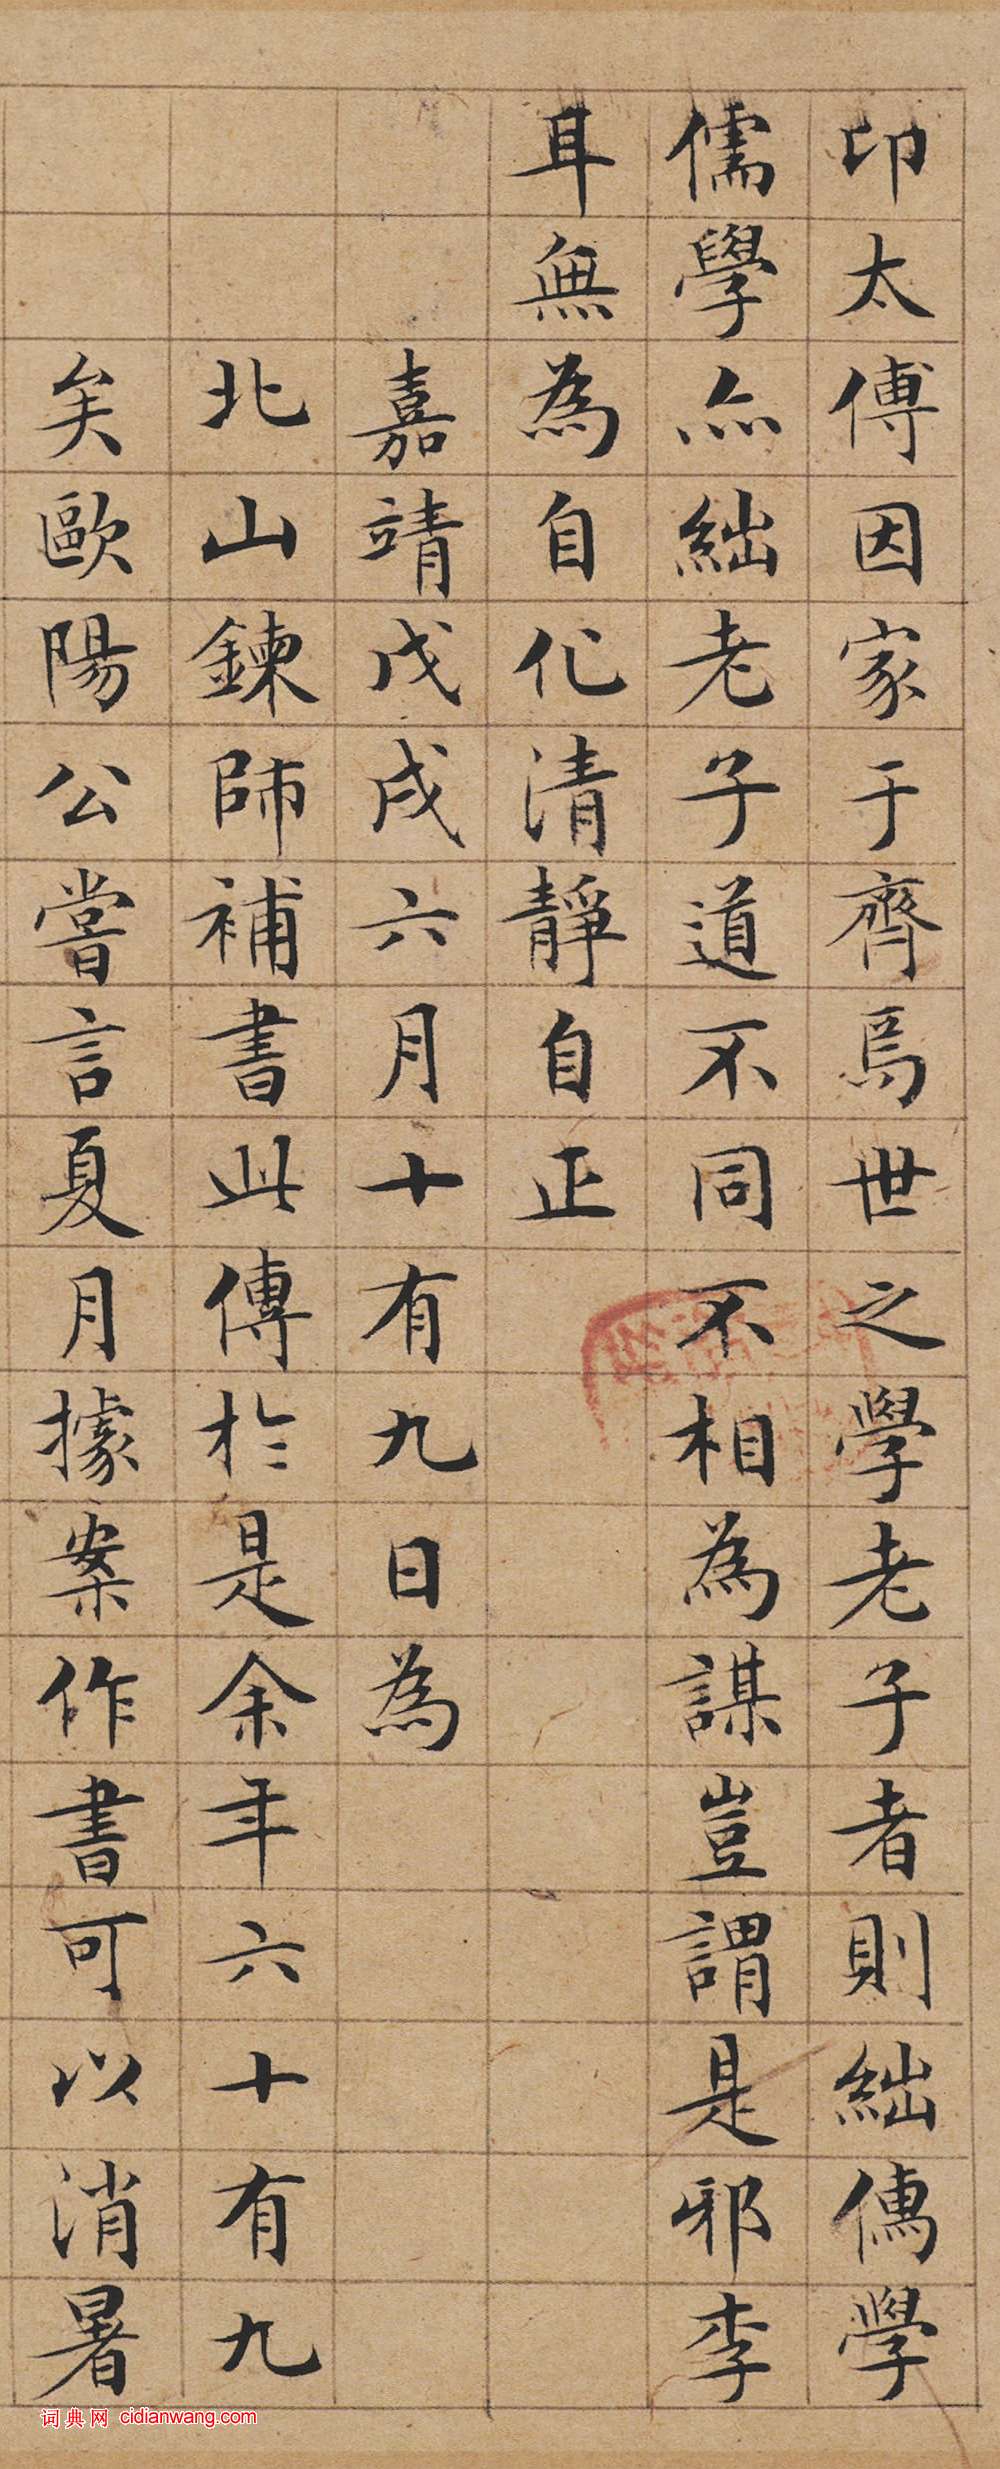 卬太傅因家于齊焉世之學老子者則絀儒學
儒學亦絀老子道不同不相為謀豈謂是邪李
耳無為自化清靜自正
嘉靖戊戌六月十有九日為
北山鍊師補書此傳於是余年六十有九
矣歐陽公嘗言夏月據案作書可以消暑
词典网 cidianwang.com